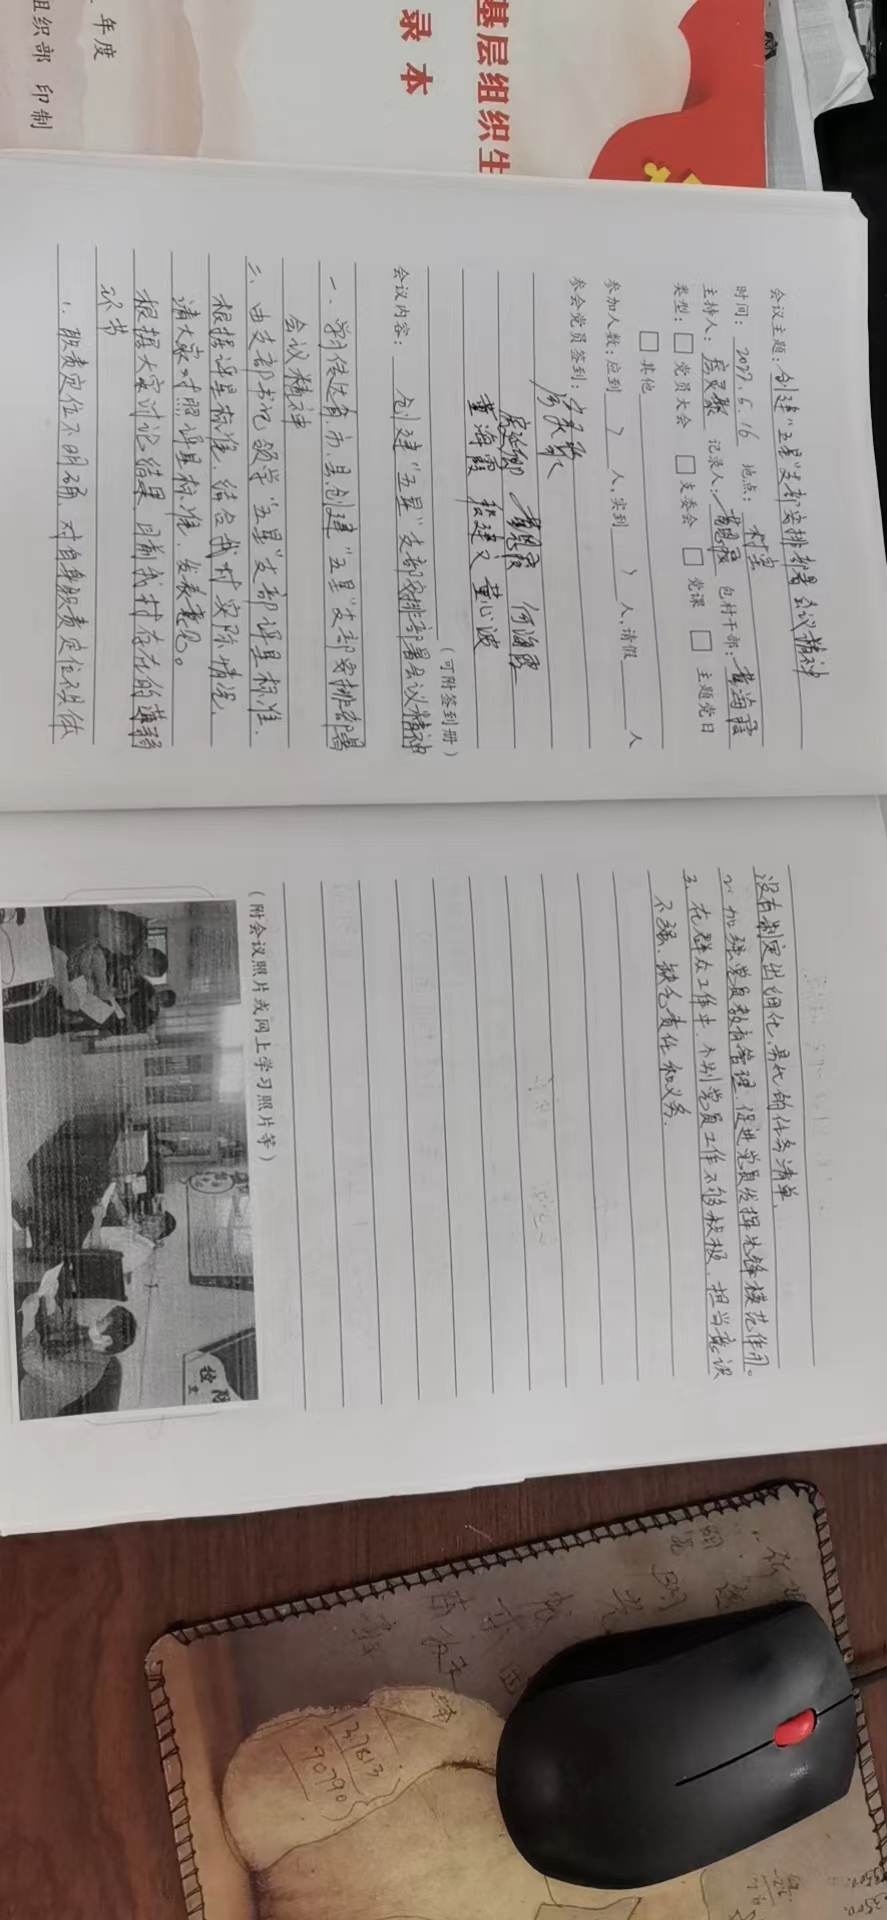 基层组织生
录本
年度
组织部 印制
会议主题：创建“五星”支部安排部署会议精神
时间：2022.6.16 地点：村室
主持人： 记录人： 包村干部：黄海霞
类型：□党员大会 □支委会 □党课 □主题党日
□其他
参加人数：应到 7 人，实到 7 人，请假 人
参会党员签到：
何海霞
黄海霞 董心波
（可附签到册）
会议内容： 创建“五星”支部安排部署会议精神
一、学习传达省、市、县创建“五星”支部安排部署
会议精神
二、由支部书记领学“五星”支部评星标准．
根据评星标准，结合我村实际情况，
请大家对照评星标准，发表意见。
根据大家讨论结果，目前我村存在的薄弱
环节
1、职责定位不明确，对自身职责定位不具体
没有制定出细化、具代的任务清单．
2、加强党员教育管理，促进党员发挥先锋模范作用。
3、在群众工作中，个别党员工作不够积极，担当意识
不强，缺乏责任和义务．
（附会议照片或网上学习照片等）
37813
90790